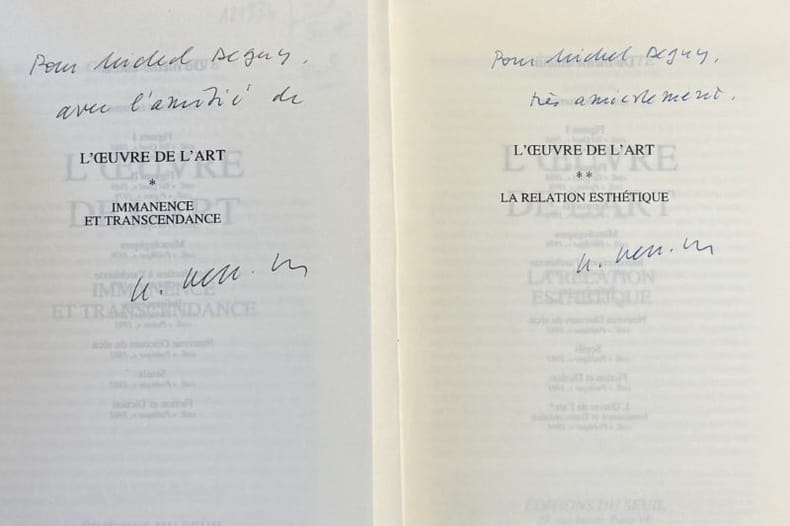 Pour Michel Deguy,
avec l'amitié de
L'ŒUVRE DE L'ART
*
IMMANENCE
ET TRANSCENDANCE
Pour Michel Deguy,
très amicalement,
L'ŒUVRE DE L'ART
**
LA RELATION ESTHÉTIQUE